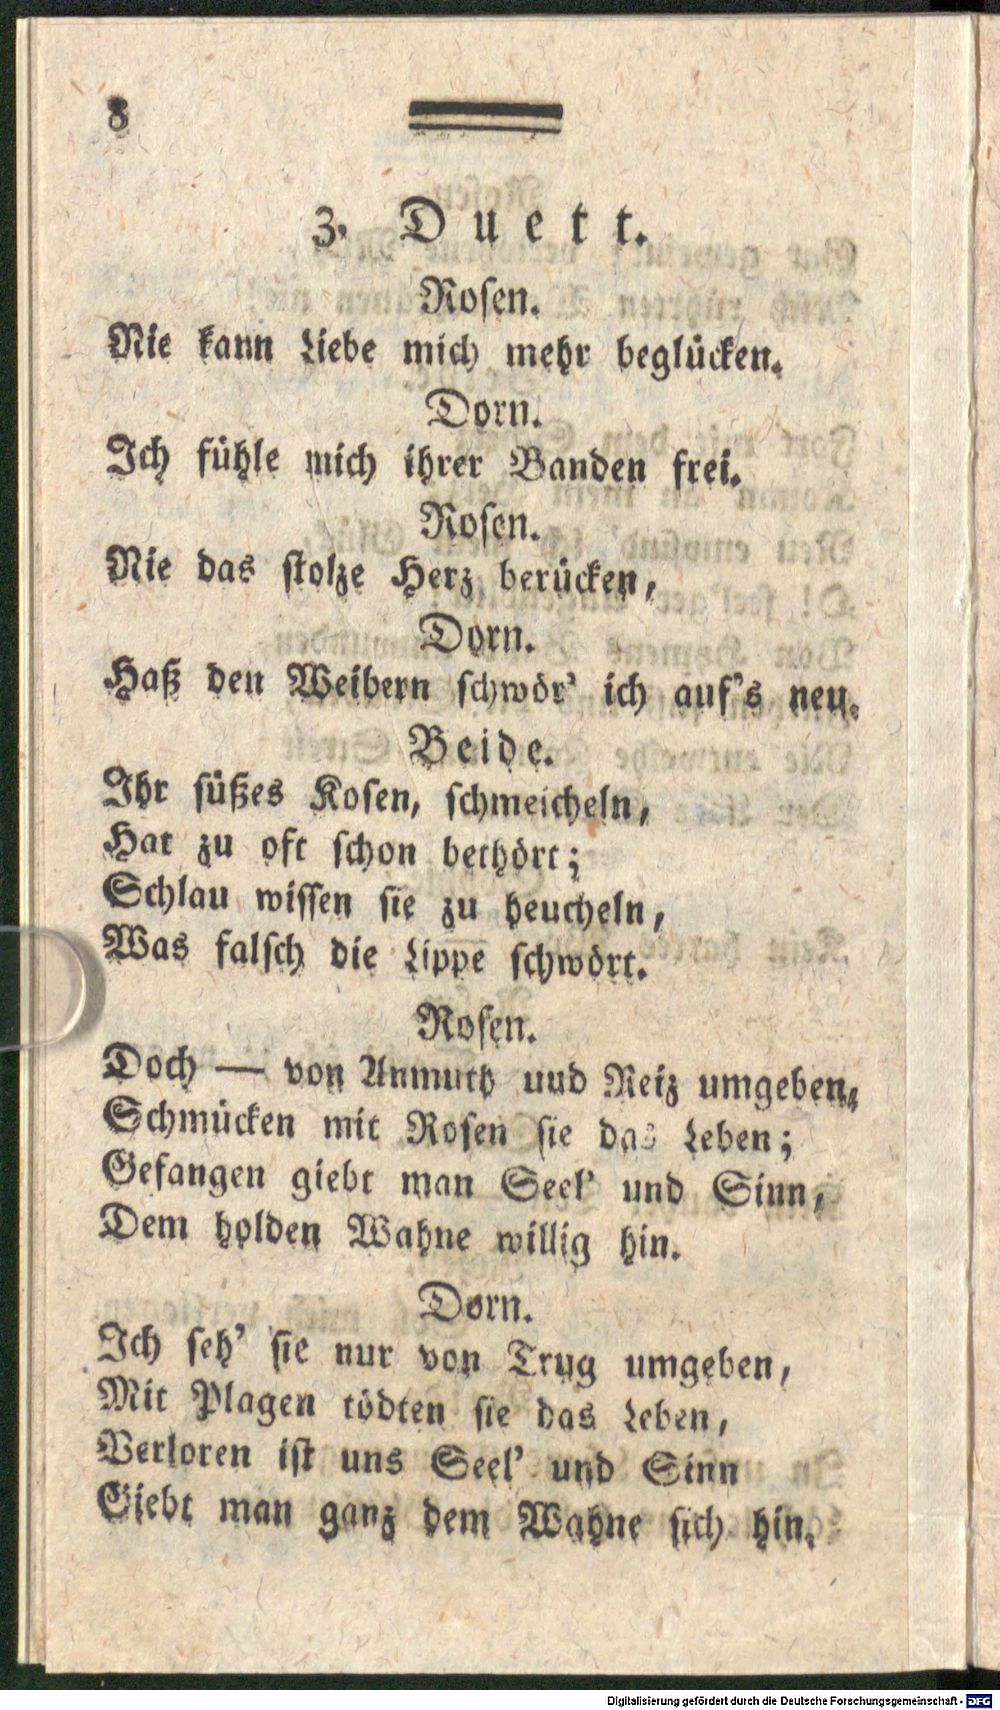 8
3. Duett.
Rosen.
Nie kann Liebe mich mehr beglücken.
Dorn.
Ich fühle mich ihrer Banden frei.
Rosen.
Nie das stolze Herz berücken,
Dorn.
Haß den Weibern schwör' ich auf's neu.
Beide.
Ihr süßes Kosen, schmeicheln,
Hat zu oft schon bethört;
Schlau wissen sie zu heucheln,
Was falsch die Lippe schwört.
Rosen.
Doch — von Anmuth und Reiz umgeben,
Schmücken mit Rosen sie das Leben;
Gefangen giebt man Seel' und Sinn,
Dem holden Wahne willig hin.
Dorn.
Ich seh' sie nur von Trug umgeben,
Mit Plagen tödten sie das Leben,
Verloren ist uns Seel' und Sinn
Giebt man ganz dem Wahne sich hin.
Digitalisierung gefördert durch die Deutsche Forschungsgemeinschaft - DFG